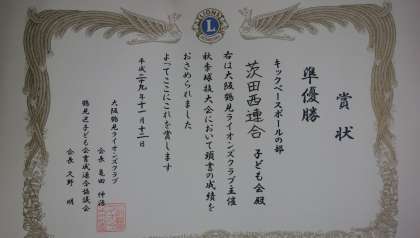 LIONS
L
賞状
準優勝
キックベースボールの部
茨田西連合 子ども会殿
右は大阪鶴見ライオンズクラブ主催
秋季球技大会において頭書の成績を
おさめられました
よってここにこれを賞します
平成二十九年十一月十二日
大阪鶴見ライオンズクラブ
会長 亀田
鶴見区子ども会育成連合協議会
会長 久野 明